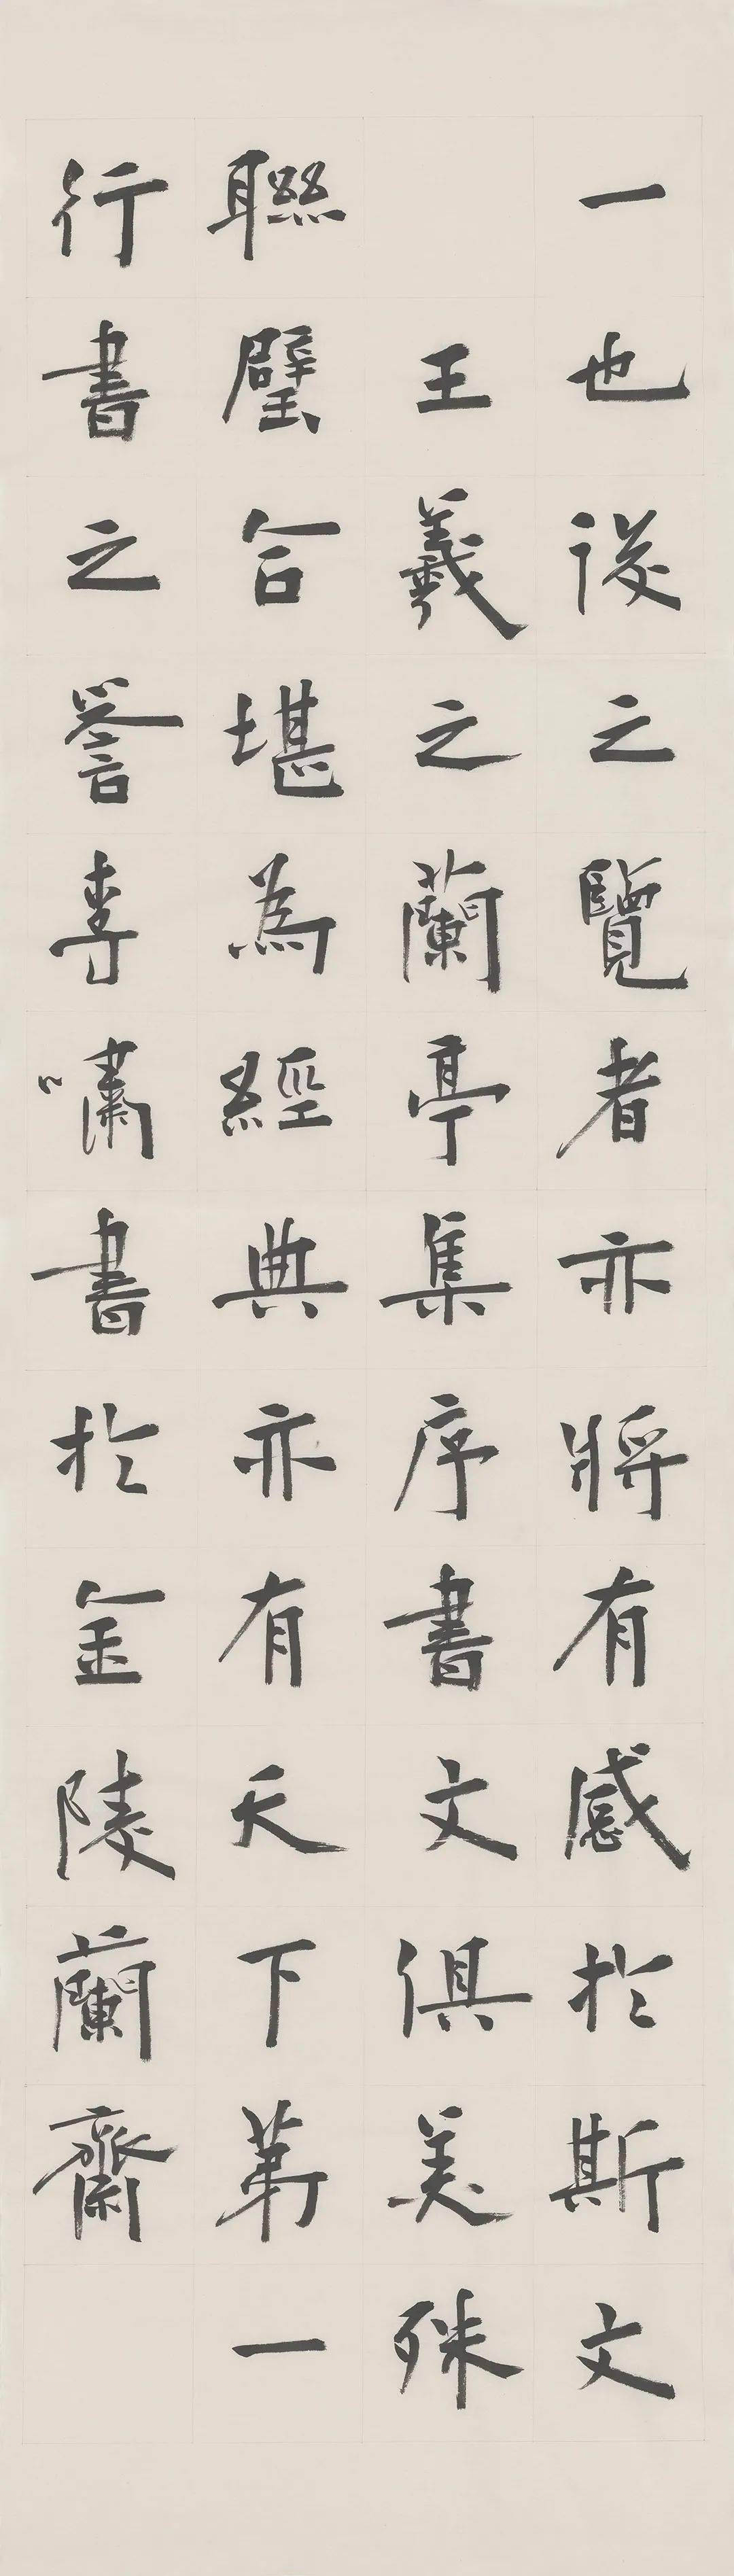 一也後之覽者亦將有感於斯文
王羲之蘭亭集序書文俱美殊
聯璧合堪為經典亦有天下第一
行書之譽嘯書於金陵蘭齋